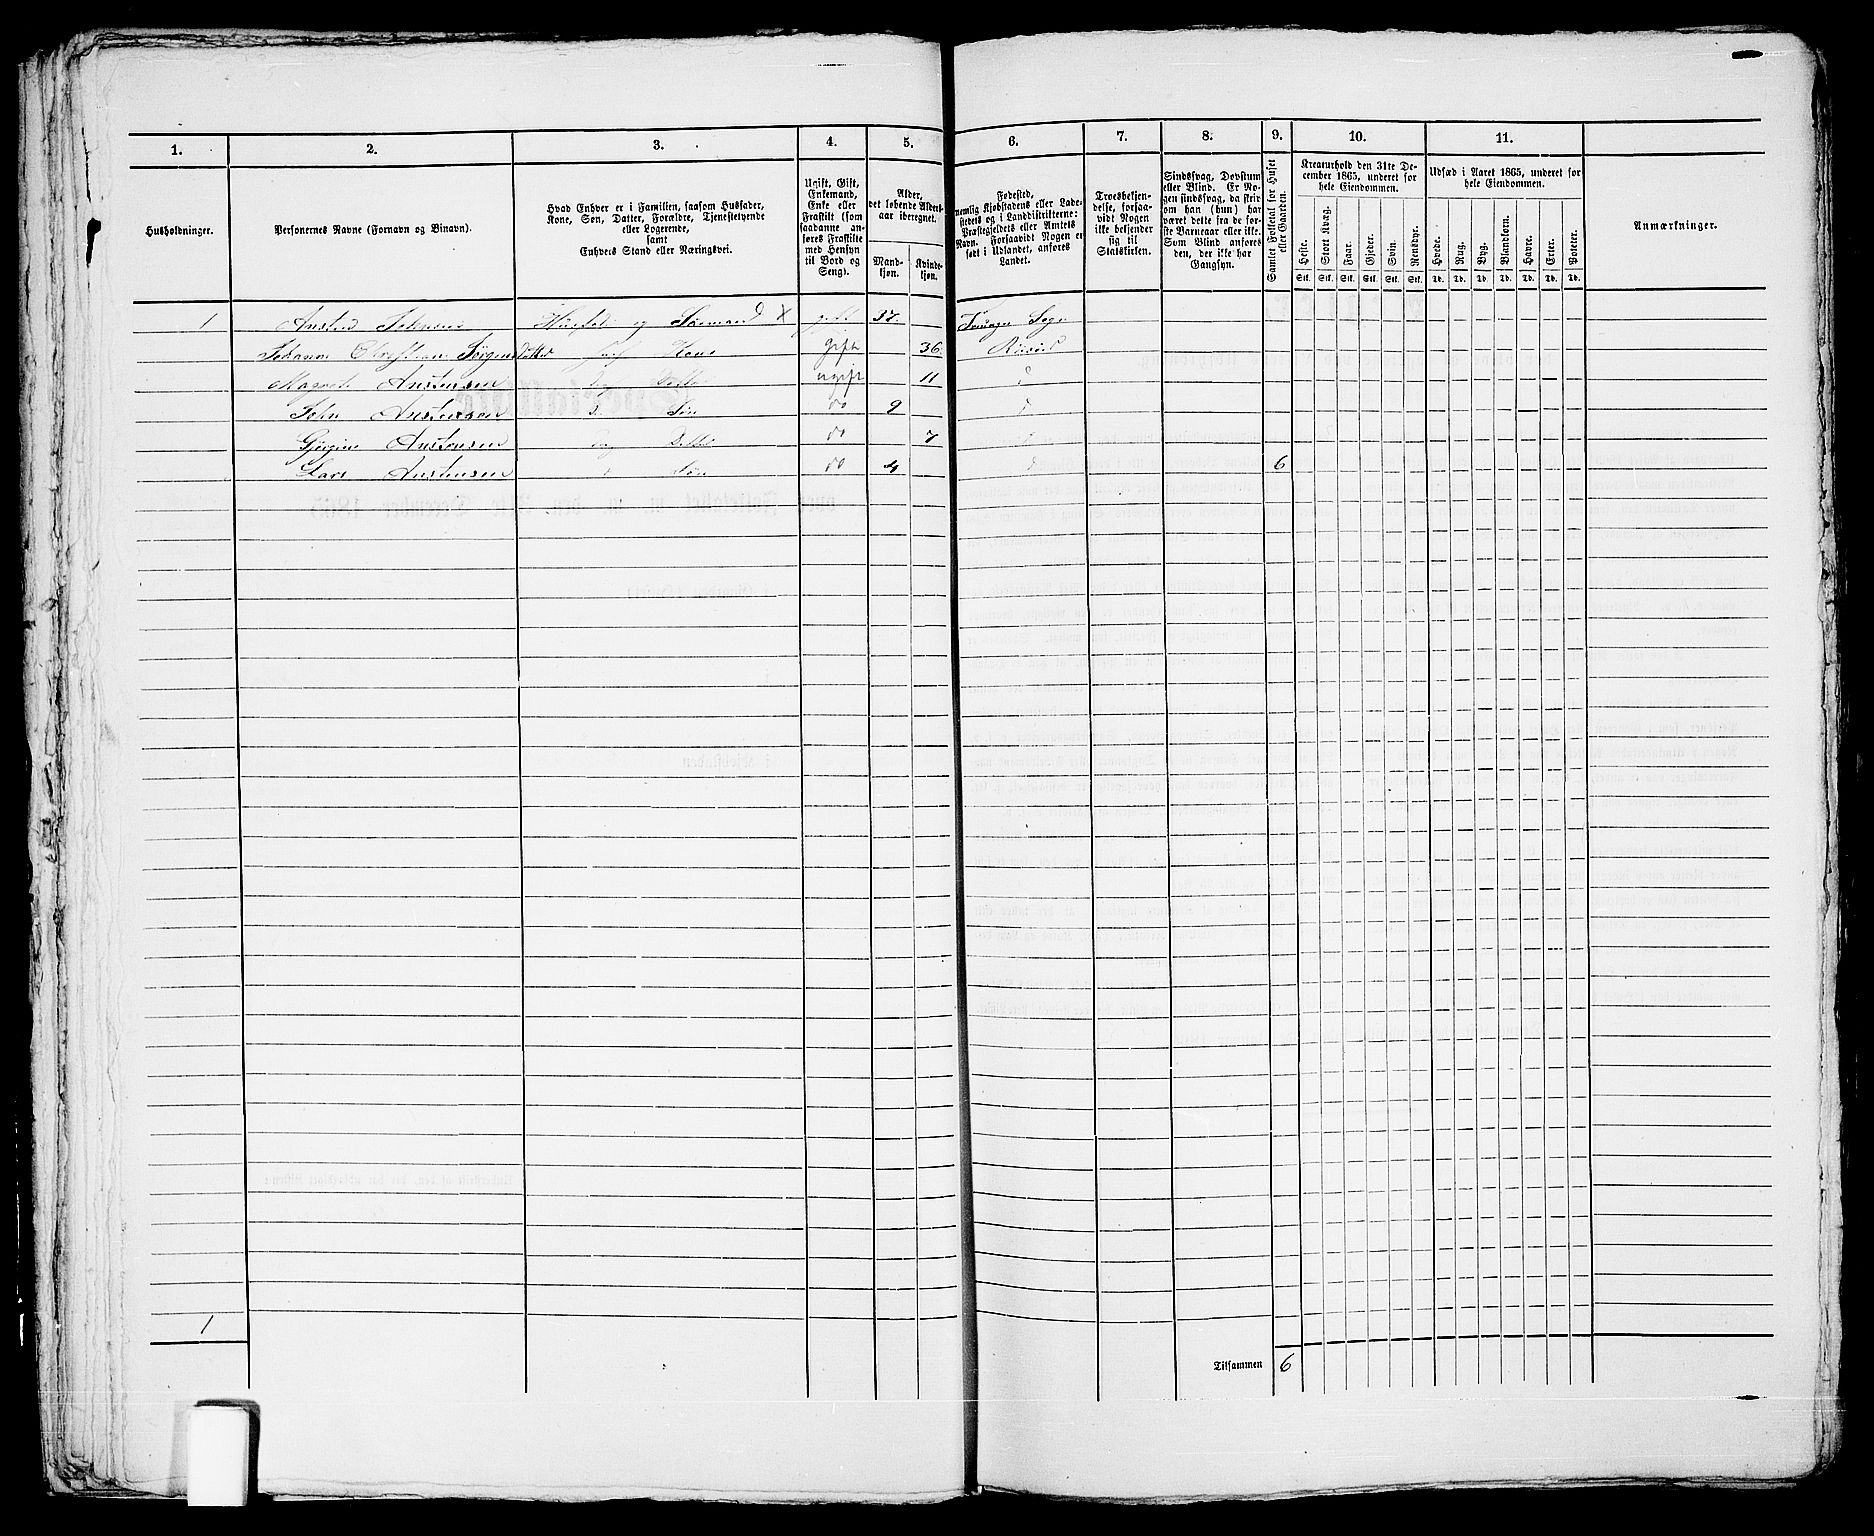 1. 2. 3. 4. 5. 6. 7. 8. 9. 10. 11.
Husholdninger.
Personernes Navne (Fornavn og Binavn).
Hvad Enhver er i Familien, saasom Husfader,
Kone, Søn, Datter, Forældre, Tjenestetyende
eller Logerende,
samt
Enhvers Stand eller Næringsvei.
Ugift, Gift,
Enkemand,
Enke eller
Fraskilt (som
saadanne an-
føres Fraskilte
med Hensyn
til Bord og
Seng).
Alder,
det løbende Alders-
aar iberegnet.
Mand-
kjøn.
Kvinde-
kjøn.
Fødested,
nemlig Kjøbstadens eller Lade-
stedets og i Landdistrikterne:
Præstegjeldets eller Amtets
Navn. Forsaavidt Nogen er
født i Udlandet, anføres
Landet.
Troesbekjen-
delse, forsaa-
vidt Nogen
ikke bekjender
sig til
Statskirken.
Sindssvag, Døvstum
eller Blind. Er No-
gen sindssvag, da skrives
om han (hun) har
været dette fra de før-
ste Barneaar eller ikke.
Som Blind anføres
den, der ikke har
Gangsyn.
Samlet Folketal for Huset
eller Gaarden.
Kreaturhold den 31te De-
cember 1865, underet for
hele Eiendommen.
Heste. Stort Kvæg. Faar. Gjeder. Svin. Rensdyr.
Stk. Stk. Stk. Stk. Stk. Stk.
Udsæd i Aaret 1865, underet for
hele Eiendommen.
Hvede. Rug. Byg. Blandkorn. Havre. Erter. Poteter.
Td. Td. Td. Td. Td. Td. Td.
Anmærkninger.
1 Johnsen og Sømand X gift 37 Sogn
Johanne Christiane Jörgensdatter Kone Gift 36
Anstensen ugift 11
John Anstensen Søn do 9
Anstensen do 7
Lars Anstensen Søn do 4 6
1
Tilsammen 6